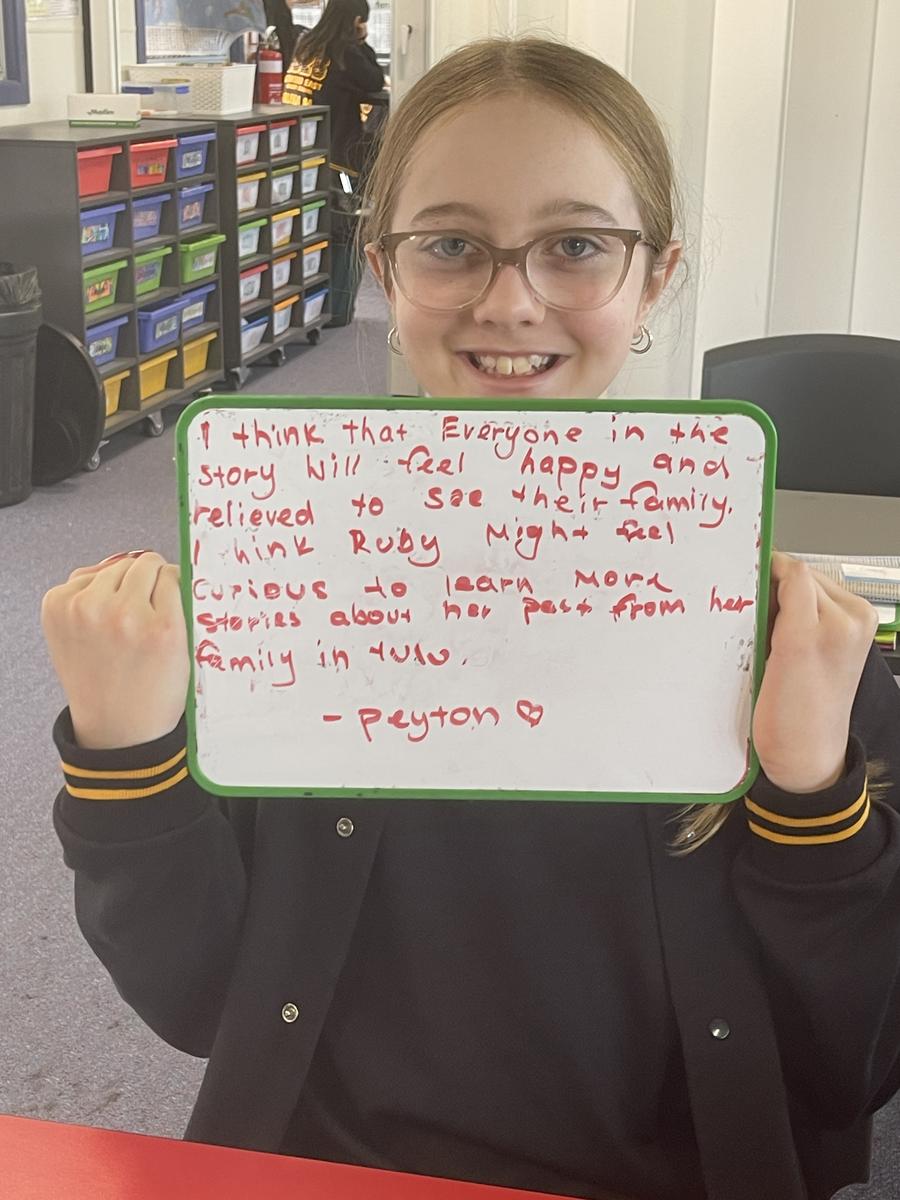 I think that Everyone in the
story will feel happy and
relieved to see their family.
I hink Ruby Might feel
Curious to learn More
stories about her past from her
family in tulu.
- peyton